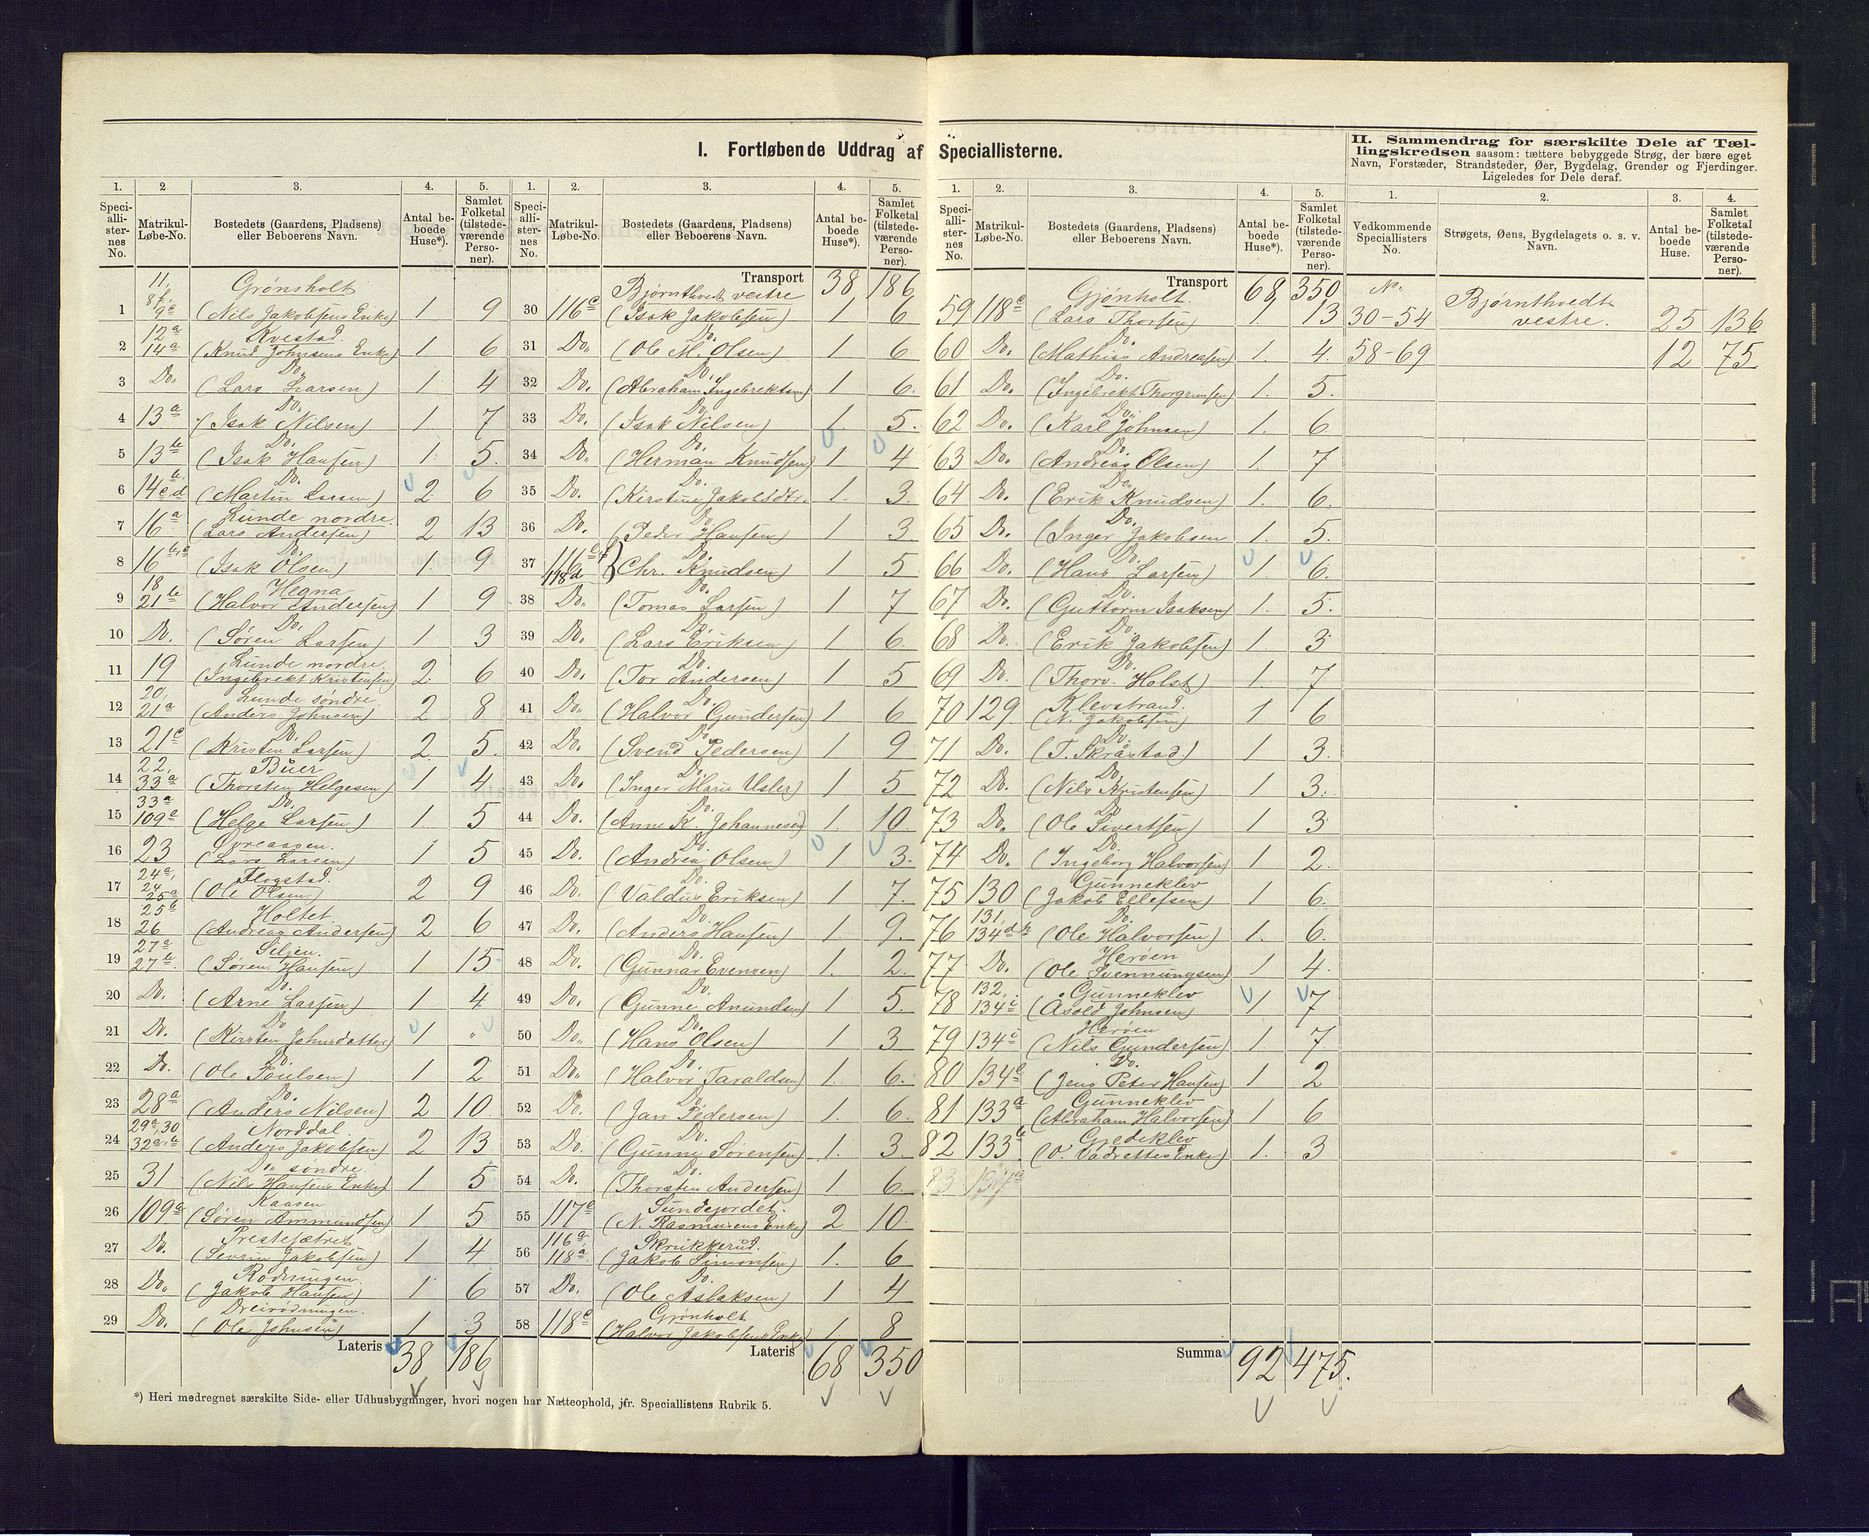 I. Fortløbende Uddrag af Speciallisterne.
II. Sammendrag for særskilte Dele af Tæl-
lingskredsen saasom: tættere bebyggede Strøg, der bære eget
Navn, Forstæder, Strandsteder, Øer, Bygdelag, Grender og Fjerdinger.
Ligeledes for Dele deraf.
1. 2 3. 4. 5.
Speciallisternes No. Matrikul-Løbe-No. Bostedets (Gaardens, Pladsens) eller Beboerens Navn. Antal beboede Huse*). Samlet Folketal (tilstedeværende Personer).
11, Grønsholt
1 (Nils Jakobsens Enke) 1 9
12a Kvestad.
2 14a (Knud Johnsens Enke) 1 6
3 Do. Do. (Lars Larsen) 1 4
4 13a Do. (Isak Nilsen) 1. 7
5 13b Do. (Isak Hansen) 1. 5.
6 14c.d Do. (Martin Larsen) 2. 6
7 16a Lunde nordre. (Lars Andersen) 2 13
8 16b,c Do. (Isak Olsen) 1. 9
18 Hegna
9 21b (Halvor Andersen) 1 9
10 Do. Do. (Søren Larsen) 1 3
11 19 Lunde nordre (Ingebrekt Kristensen) 2. 6
20, Lunde søndre
12 21a (Anders Johnsen) 2 8
13 21c Do. (Kristen Larsen) 2. 5.
22, Büer
14 33a (Thorsten Helgesen) 1 4.
33a Do.
15 109a (Helge Larsen) 1. 5
16 23 Øvreaasen. (Lars Larsen) 1 5
24a, Flogstad.
17 25a (Ole Olsen) 2 9
25b Holtet.
18 26 (Andreas Andersen) 2 6
27a Siljen.
19 27b (Søren Hansen) 1 15
20 Do. Do. (Arne Larsen) 1 4
21 Do. Do. (Kirsten Johnsdatter) 1 "
22 Do. Do. (Ole Poulsen) 1 2
23 28a Do. (Anders Nilsen) 2 10.
29a,30 Norddal
24 32a,b (Anders Jakobsen) 2 13
25 31 Do. søndre. (Nils Hansens Enke) 1 5
26 109a Kaasen (Søren Ammundsen) 1 5
27 Do. Prestesætret (Sevrin Jakobsen) 1 4
28 Do. Rødningen. (Jakob Hansen) 1 6
29 Do. Dreirødningen. (Ole Johnsen) 1 3
Lateris 38 186
*) Heri medregnet særskilte Side- eller Udhusbygninger, hvori nogen har Natteophold, jfr. Speciallistens Rubrik 5.
1. 2. 3. 4. 5.
Speciallisternes No. Matrikul-Løbe-No. Bostedets (Gaardens, Pladsens) eller Beboerens Navn. Antal beboede Huse*). Samlet Folketal (tilstedeværende Personer).
Transport 38, 186
30 116c Bjørnthvedt vestre (Isak Jakobsen) 1 6
31 Do. Do. (Ole M. Olsen) 1 6
32 Do. Do. (Abraham Ingebrektsen) 1 6.
33 Do. Do. (Isak Nilsen) 1. 5.
34 Do. Do. (Herman Knudsen) 1 4
35 Do. Do. (Kirstine Jakobsdtr. 1. 3.
36 Do. Do. (Peder Hansen) 1 3.
37 116e,f 118d Do. (Chr. Knudsen) 1 5
38 Do. Do. (Tomas Larsen) 1 7
39 Do. Do. (Lars Eriksen) 1 6.
40 Do. Do. (Tor Andersen) 1 5
41 Do. Do. (Halvor Gundersen) 1 6
42 Do. Do. (Svend Pedersen) 1 9
43 Do. Do. (Inger Marie Usler) 1 5
44 Do. Do. (Anne K. Johannesen) 1. 10.
45 Do. Do. (Andrea Olsen) 1 3.
46 Do. Do. (Valdus Eriksen) 1 7.
47 Do. Do. (Anders Hansen) 1. 9.
48 Do. Do. (Gunnar Evensen) 1. 2.
49 Do. Do. (Gunne Amundsen) 1 5.
50 Do. Do. (Hans Olsen) 1 3
51 Do. Do. (Halvor Taraldsen) 1. 6.
52 Do. Do. (Jan Pedersen) 1. 6.
53 Do. Do. (Gunne Sørensen) 1. 3.
54 Do. Do. (Thorsten Andersen) 1. 6
55 117c Sundejordet. (N. Rasmusens Enke) 2 10.
116a, Skrukkerud.
56 118a (Jakob Simonsen) 1. 6
57 Do. Do. (Ole Aslaksen) 1 4
58 118c Grønholt (Halvor Jakobsens Enke) 1 8
Lateris 68 350
1. 2. 3. 4. 5.
Speciallisternes No. Matrikul-Løbe-No. Bostedets (Gaardens, Pladsens) eller Beboerens Navn. Antal beboede Huse*). Samlet Folketal (tilstedeværende Personer).
Transport 68, 350
59 118c Gjønholt. (Lars Thorsen) 1. 13
60 Do. Do. (Mathias Andreasen) 1. 4.
61 Do. Do. (Ingebrekt Thorgrimsen) 1. 5.
62 Do. Do. (Karl Johnsen) 1. 6.
63 Do. Do. (Andreas Olsen) 1. 7
64 Do. Do. (Erik Knudsen) 1. 6.
65 Do. Do. (Inger Jakobsen 1. 5.
66 Do. Do. (Hans Larsen) 1 6.
67 Do. Do. (Guttorm Isaksen) 1. 5.
68 Do. Do. (Erik Jakobsen) 1 3
69 Do. Do. (Thorv. Holst) 1. 7
70 129. Klevstrand. (N. Jakobsen) 1 6
71 Do. Do. (T. Skråstad) 1. 3.
72 Do. Do. (Nils Kristensen) 1 3.
73 Do. Do. (Ole Sivertsen) 1 3
74 Do. Do. (Ingeborg Halvorsen) 1 2.
75 130 Gunneklev (Jakob Ellefsen) 1 6.
131, Do.
76 134d,h (Ole Halvorsen) 1. 6.
77 Do. Herøen (Ole Svennungsen) 1 4.
132, Gunneklev
78 134i (Asold Johnsen) 1 7
79 134c Herøen (Nils Gundersen) 1. 7
80 134b Do. (Jens Peter Hansen) 1 2
81 133a Gunneklev (Abraham Halvorsen) 1 6
82 133b Grødeklev (O. Vadrettes Enke) 1. 3
83 134a
Summa 92 475.
1. 2. 3. 4.
Vedkommende Speciallisters No. Strøgets, Øens, Bygdelagets o. s. v. Navn. Antal beboede Huse. Samlet Folketal (tilstedeværende Personer).
No.
30-54 Bjørnthvedt vestre. 25 136
58-69 12 75